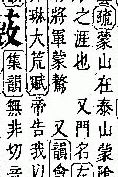 蒙山在泰山蒙陰
之涯也 又門名左
將軍蒙驁 又韻會
琳大荒賦帝告我以
集韻無非切音